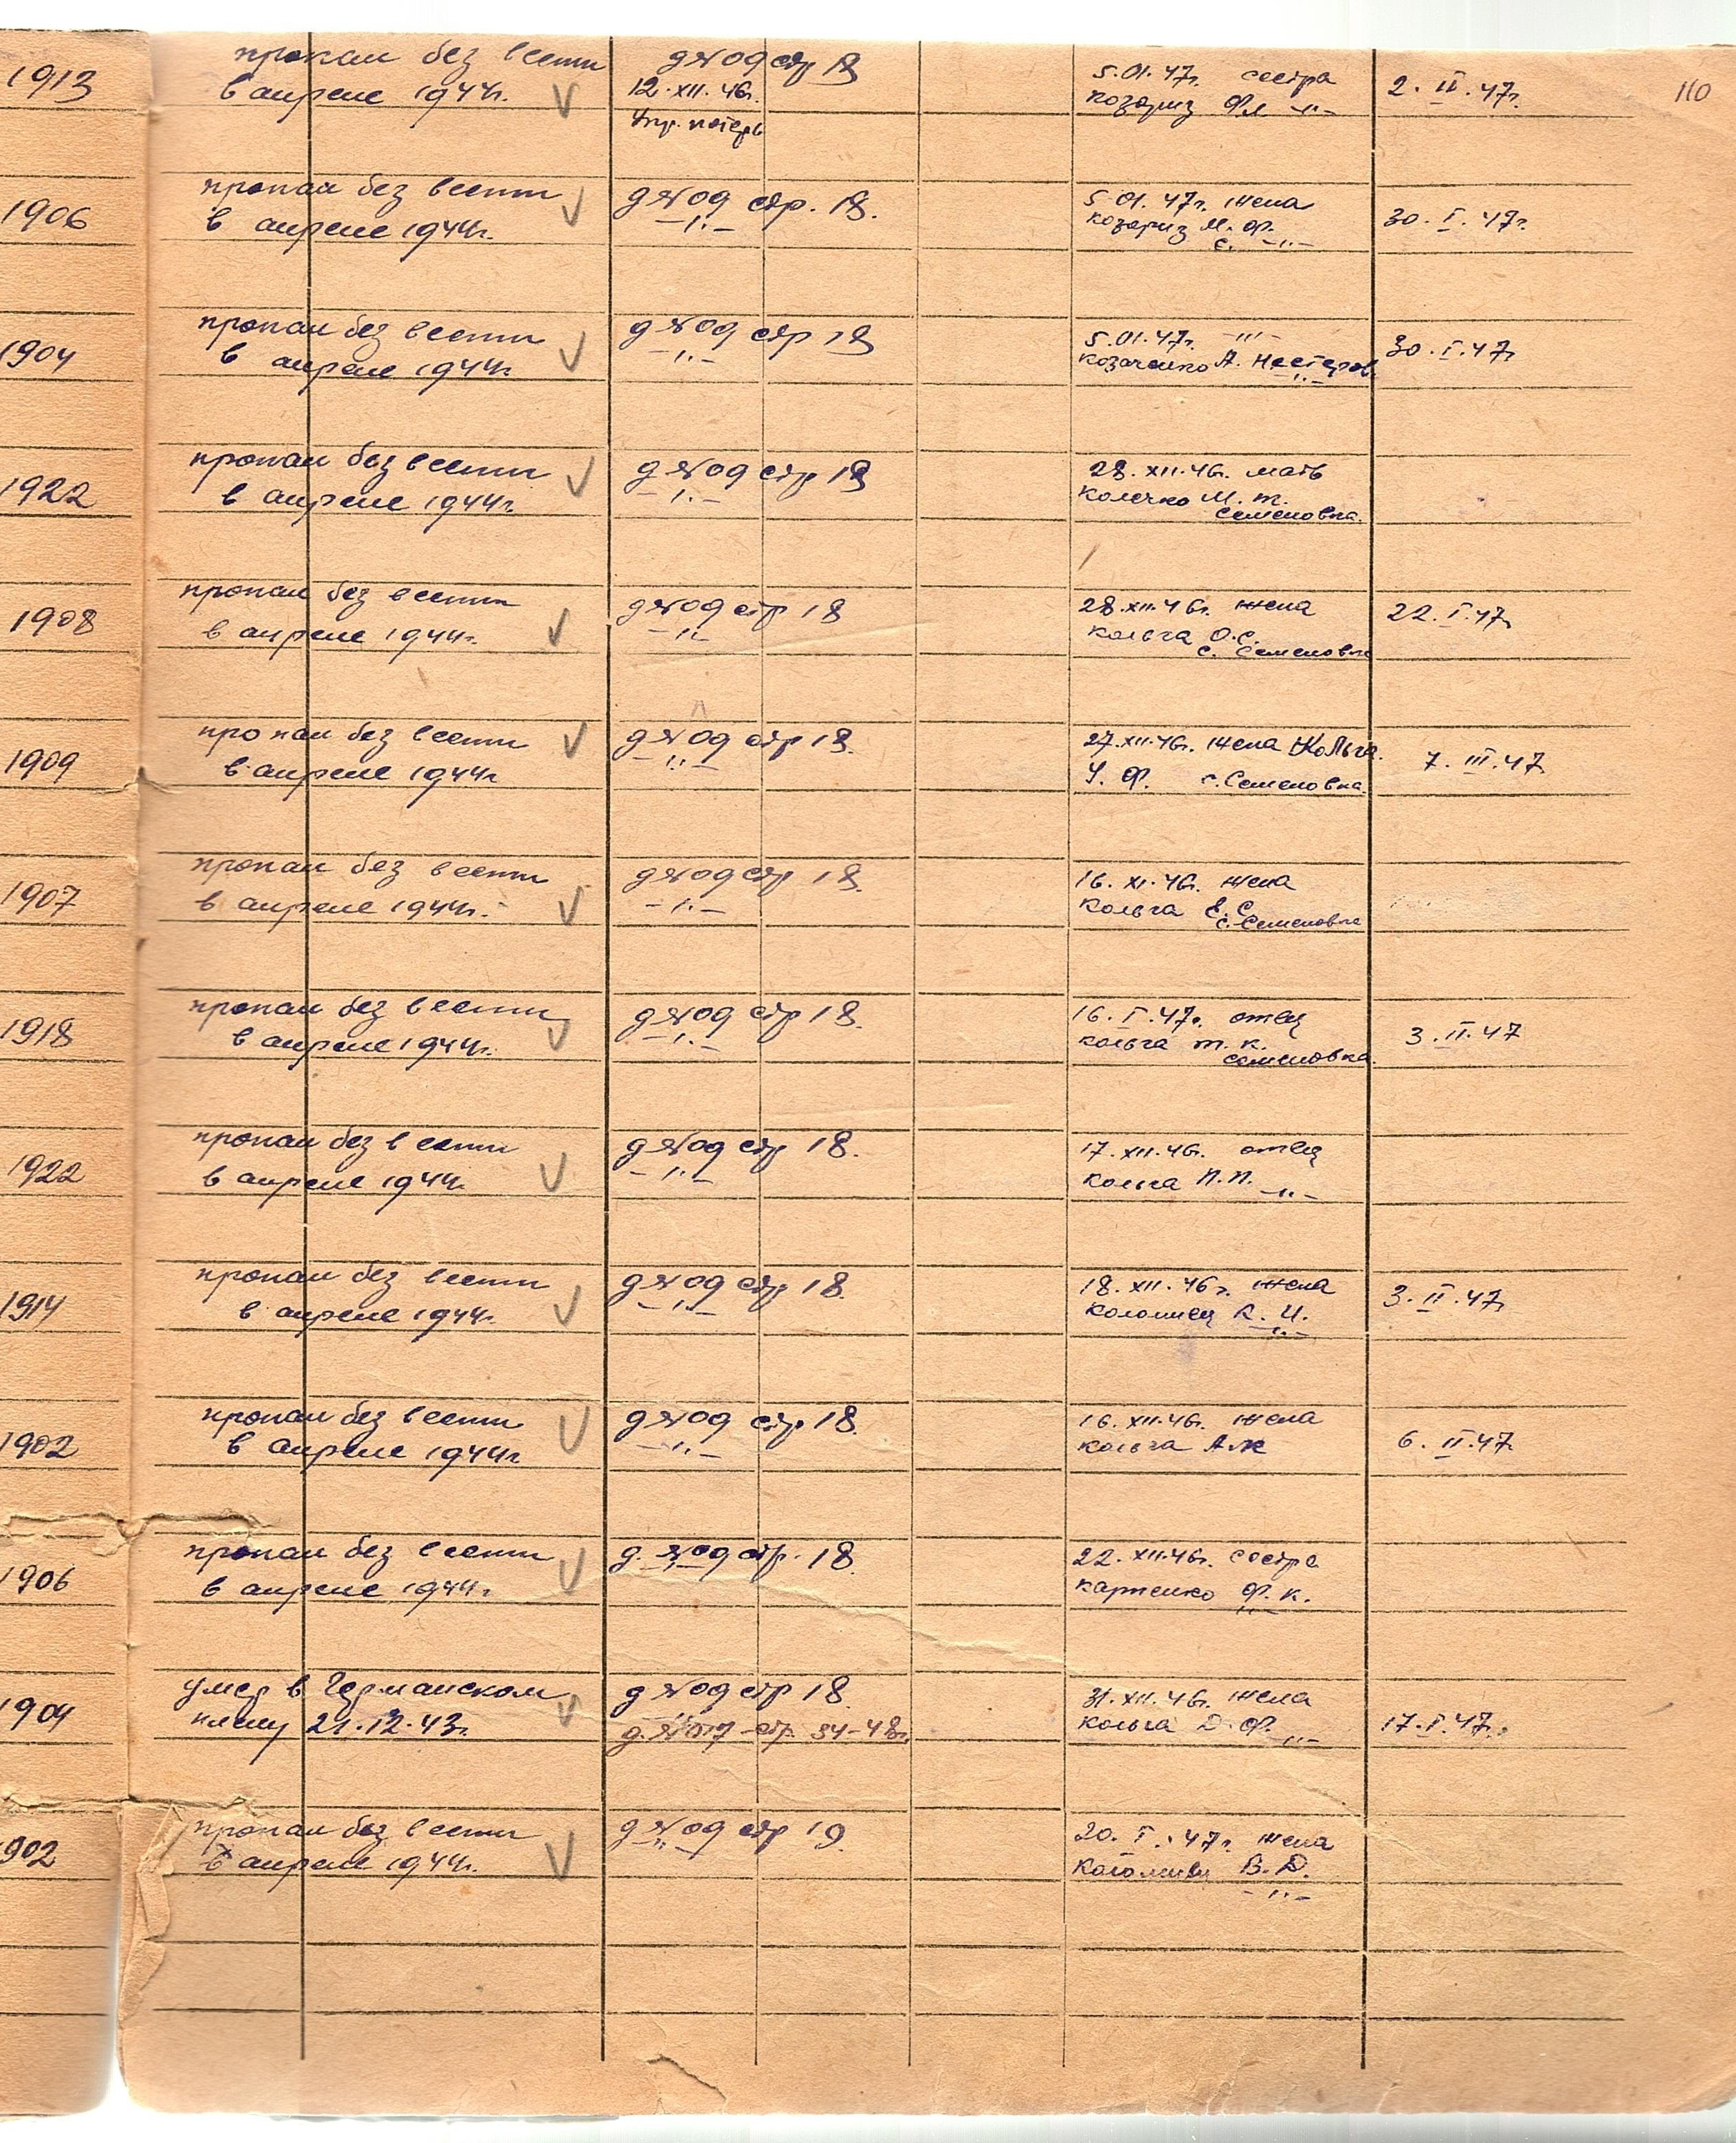 110
1913 пропал без вести д №09 стр 18 5.01.47г. сестра 2.II.47г.
в апреле 1944г. 12.XII.46г. козориз Ф.Л. -"-
Упр. потерь
1906 пропал без вести д №09 стр. 18. 5.01.47г. жена 30.I.47г.
в апреле 1944г. -"- козориз М.Ф.
с. -"-
1904 пропал без вести д №09 стр 18 5.01.47г. -"- 30.I.47г
в апреле 1944г. -"- козаченко А. Нестеров.
-"-
1922 пропал без вести д №09 стр 18 28.XII.46г. мать
в апреле 1944г. -"- колечко М.т.
Семеновка.
1908 пропал без вести д №09 стр 18 28.XII.46г. жена 22.I.47г.
в апреле 1944г. -"- кольга О.С.
с. Семеновка
1909 пропал без вести д №09 стр 18. 27.XII.46г. жена Кольга. 7.III.47
в апреле 1944г -"- У.Ф. с. Семеновка.
1907 пропал без вести д №09 стр 18. 16.XI.46г. жена
в апреле 1944г. -"- кольга Е.С.
с. Семеновка
1918 пропал без вести д №09 стр 18. 16.I.47г. отец 3.II.47
в апреле 1944г. -"- кольга т.к.
семеновка.
1922 пропал без вести д №09 стр 18. 17.XII.46г. отец
в апреле 1944г. -"- кольга П.П. -"-
1914 пропал без вести д №09 стр 18. 18.XII.46г. жена 3.II.47г
в апреле 1944г. -"- коломиец К.И.
-"-
1902 пропал без вести д №09 стр 18. 16.XII.46г. жена 6.II.47г.
в апреле 1944г -"- кольга А.К
1906 пропал без вести д. №09 стр. 18. 22.XII.46г. сестра
в апреле 1944г. -"- карпенко Ф.К.
-"-
1904 умер в Германском д №09 стр 18. 31.XII.46г. жена 17.I.47г.
плену 21.12.43г. д. №017-стр. 34-48г. кольга Д.Ф. -"-
902 пропал без вести д №09 стр 19. 20.I.47г. жена
в апреле 1944г. -"- В.Д.
-"-